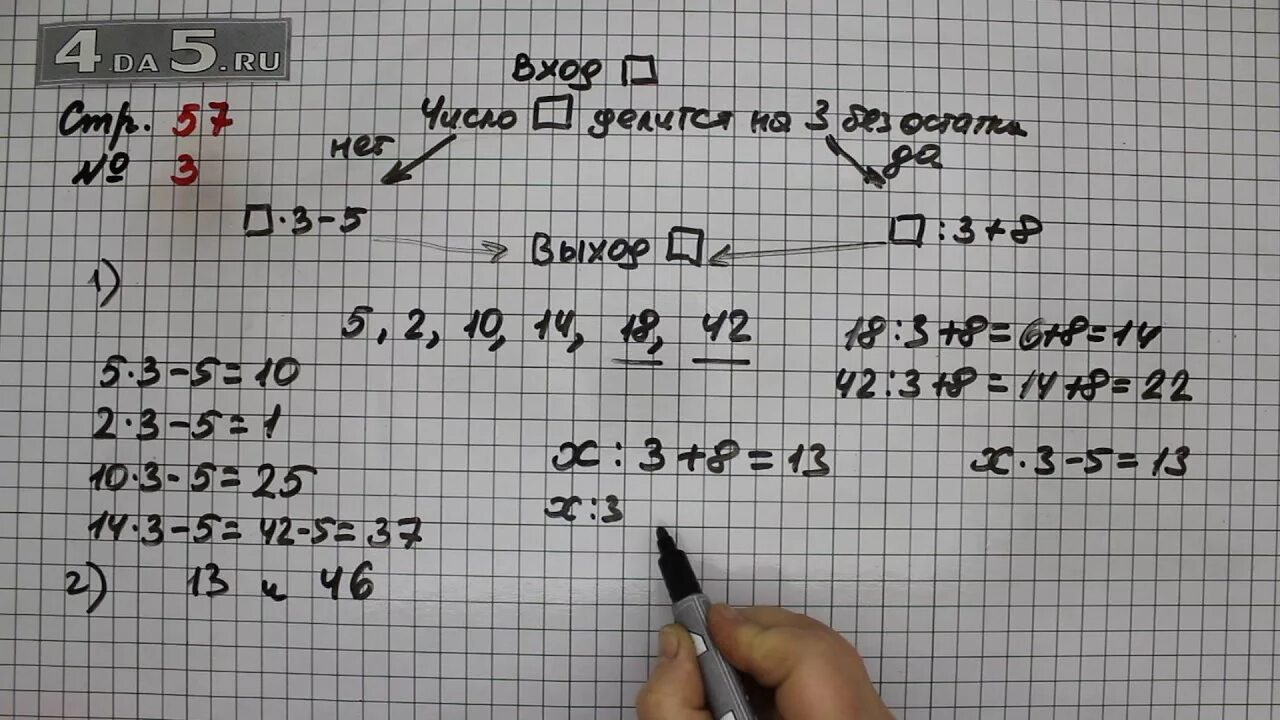 4DA5.RU
Вход □
Стр. 57
Число □ делится на 3 без остатка
нет
да
№ 3
□·3-5
□:3+8
Выход □
1)
5, 2, 10, 14, 18, 42
18:3+8=6+8=14
5·3-5=10
42:3+8=14+8=22
2·3-5=1
x:3+8=13
x·3-5=13
10·3-5=25
x:3
14·3-5=42-5=37
2) 13 и 46